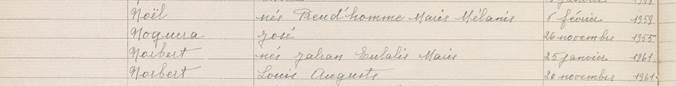 Noël née Preud'homme Marie Mélanie 5 février 1959.
Noguera José 26 novembre 1955
Norbert née Jalran Eulalie Marie 25 janvier 1961.
Norbert Louis Auguste 20 novembre 1961.